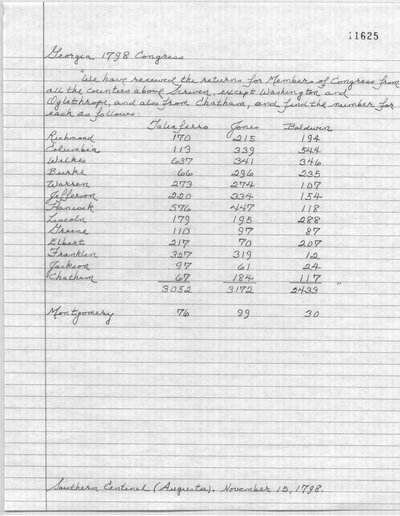 11625
Georgia 1798 Congress
"We have received the returns for Members of Congress from
all the counties above Scriven, except Washington and
Oglethrope, and also from Chatham, and find the number for
each as follows:
Taleaferro Jones Baldwin
Richmond 170 215 194
Columbia 113 339 544
Wilkes 637 341 346
Burke 66 296 235
Warren 273 274 107
Jefferson 220 334 154
Hancock 576 447 118
Lincoln 179 195 288
Greene 110 97 87
Elbert 217 70 207
Franklin 327 319 12
Jackson 97 61 24
Chatham 67 184 117
3052 3172 2433 "
Montgomery 76 99 30
Southern Centinel (Augusta). November 15, 1798.